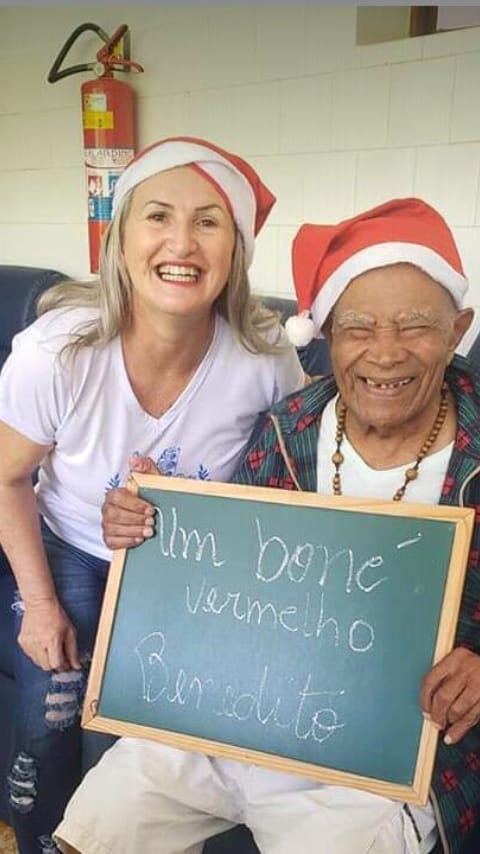 Um boné
vermelho
Benedito